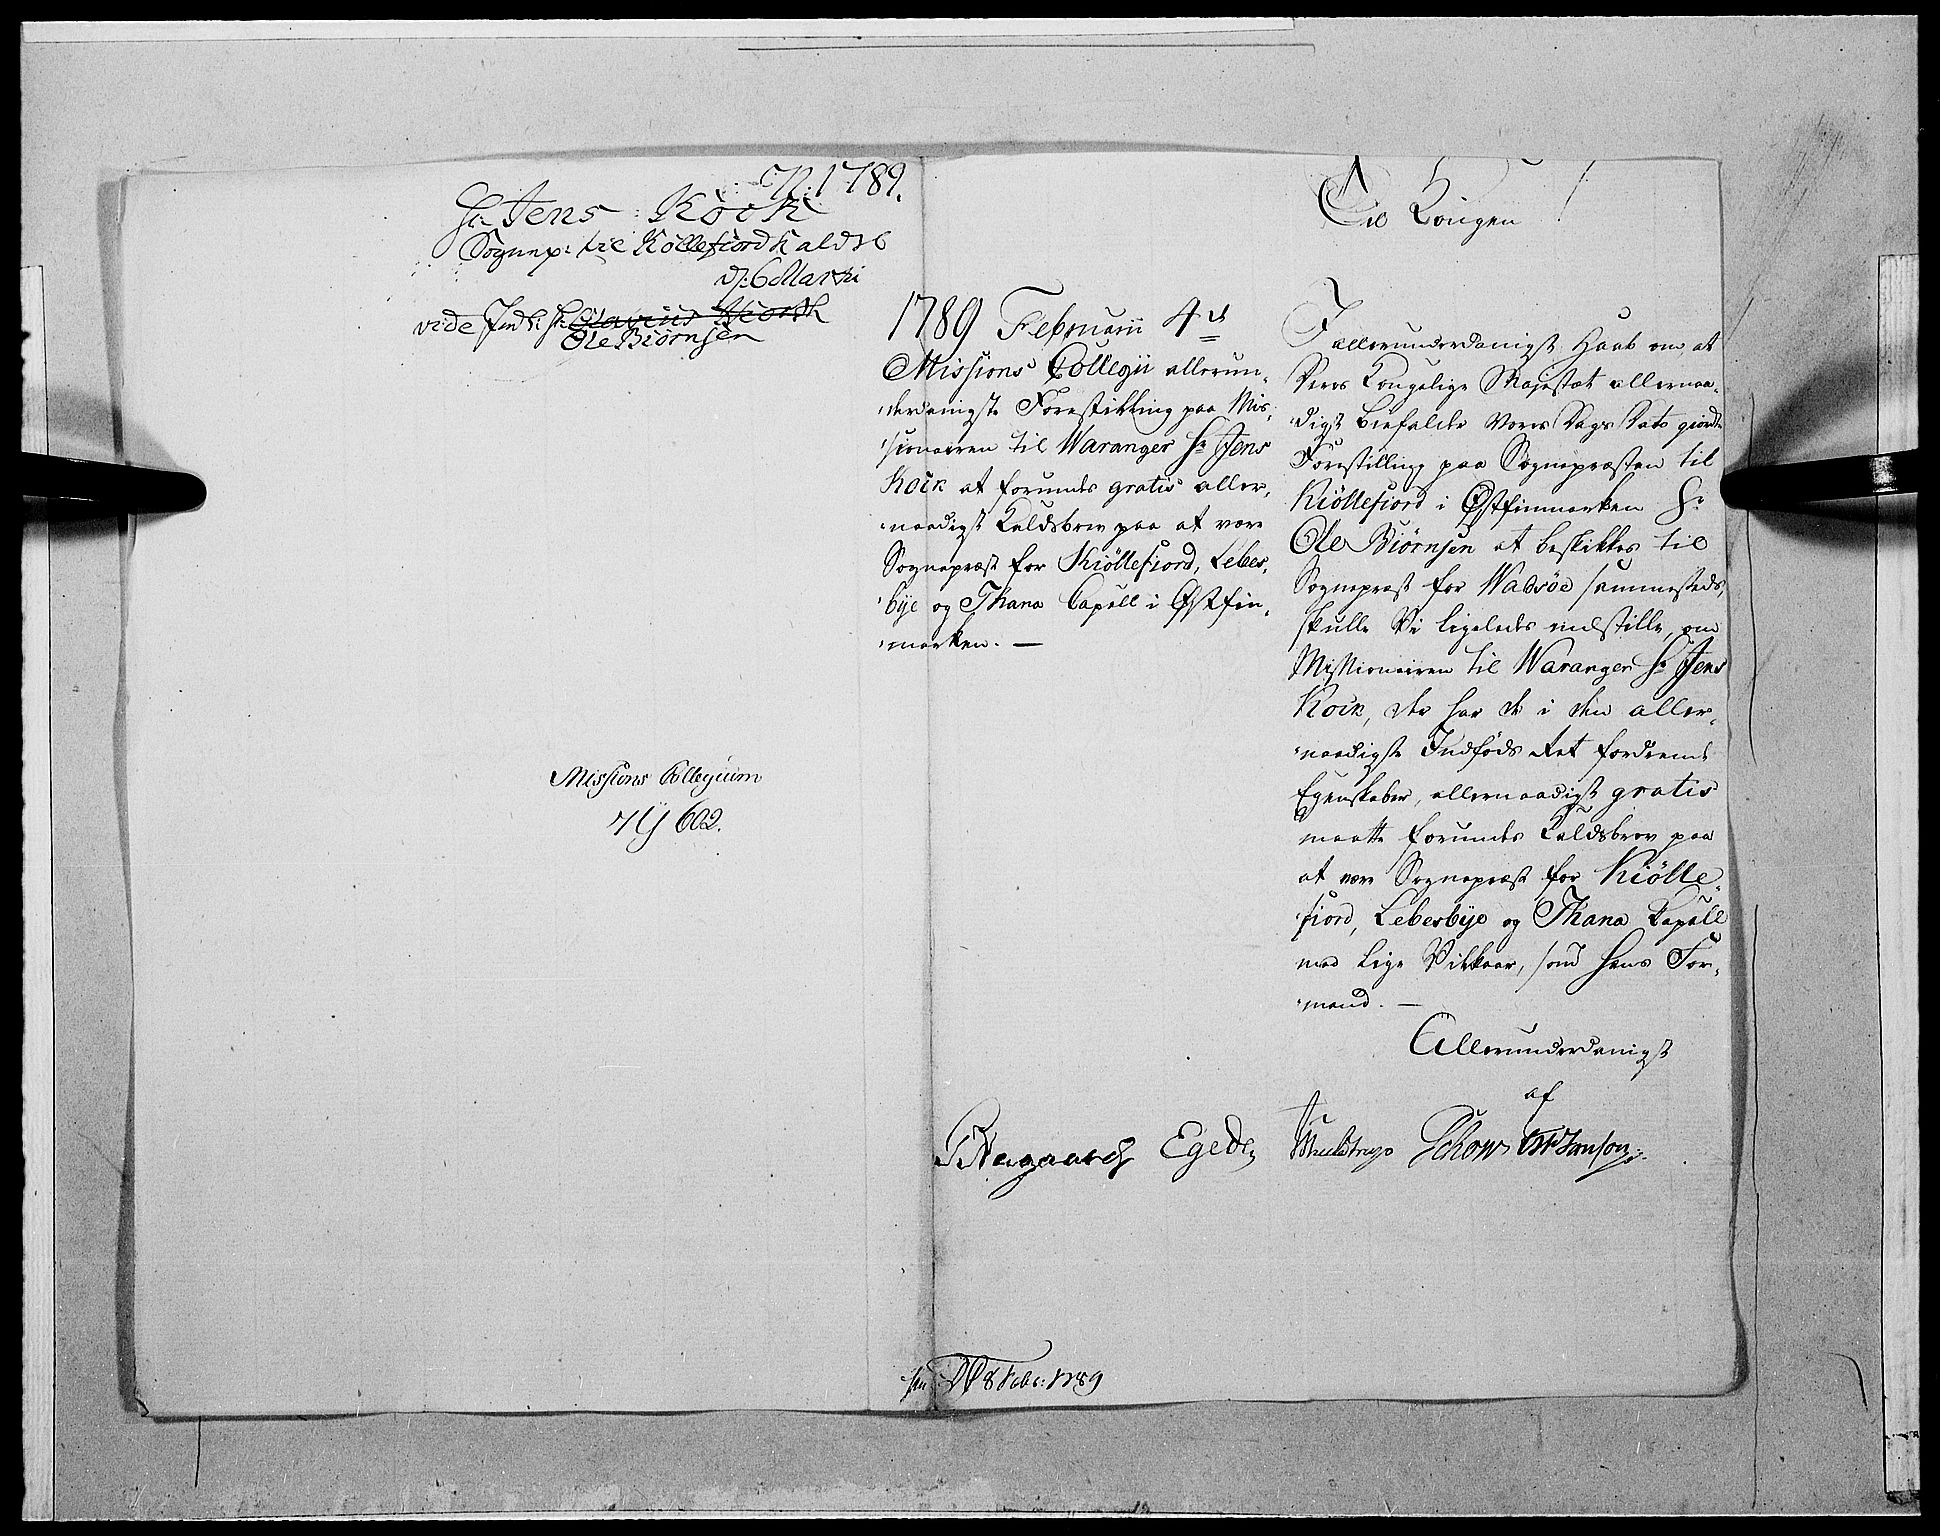 N: 1789.
Hr: Jens Kock
Sognep: til Köllefiord Kaldsb
d: 6 Martii
vide Ind: i Hr: Olavius Hiorth
Ole Biørnsen
Missions Collegium
602.
1789 Februarii 4de
Missions Collegii allerun-
derdanigste Forestilling paa Mis-
sionairen til Waranger Hr Jens
Kock at forundes gratis aller-
naadigst Kaldsbrev paa at være
Sognepræst for Kiöllefiord, Lebes-
bye og Thana Capell i Østfin-
marken. —
Til Kongen!
I allerunderdanigst Haab om, at
Deres Kongelige Majestæt allernaa-
digst biefalder Vores Dags Dato giorde
Forestilling paa Sognepræsten til
Kiöllefiord i Østfinmarken Hr
Ole Biørnsen at beskikkes til
Sognepræst for Wadsöe sammesteds,
skulle Vi ligeledes indstille, om
Missionairen til Waranger Hr Jens
Kock, der har de i den aller-
naadigste Indføds Ret fordrende
Egenskaber, allernaadigst gratis
maatte forundes Kaldsbrev paa
at være Sognepræst for Kiölle-
fiord, Lebesbye og Thana Capell
med lige Vilkaar, som hans For-
mand. —
Allerunderdanigst
af
Aagaard Egede Schow Janson
8 Febr: 1789